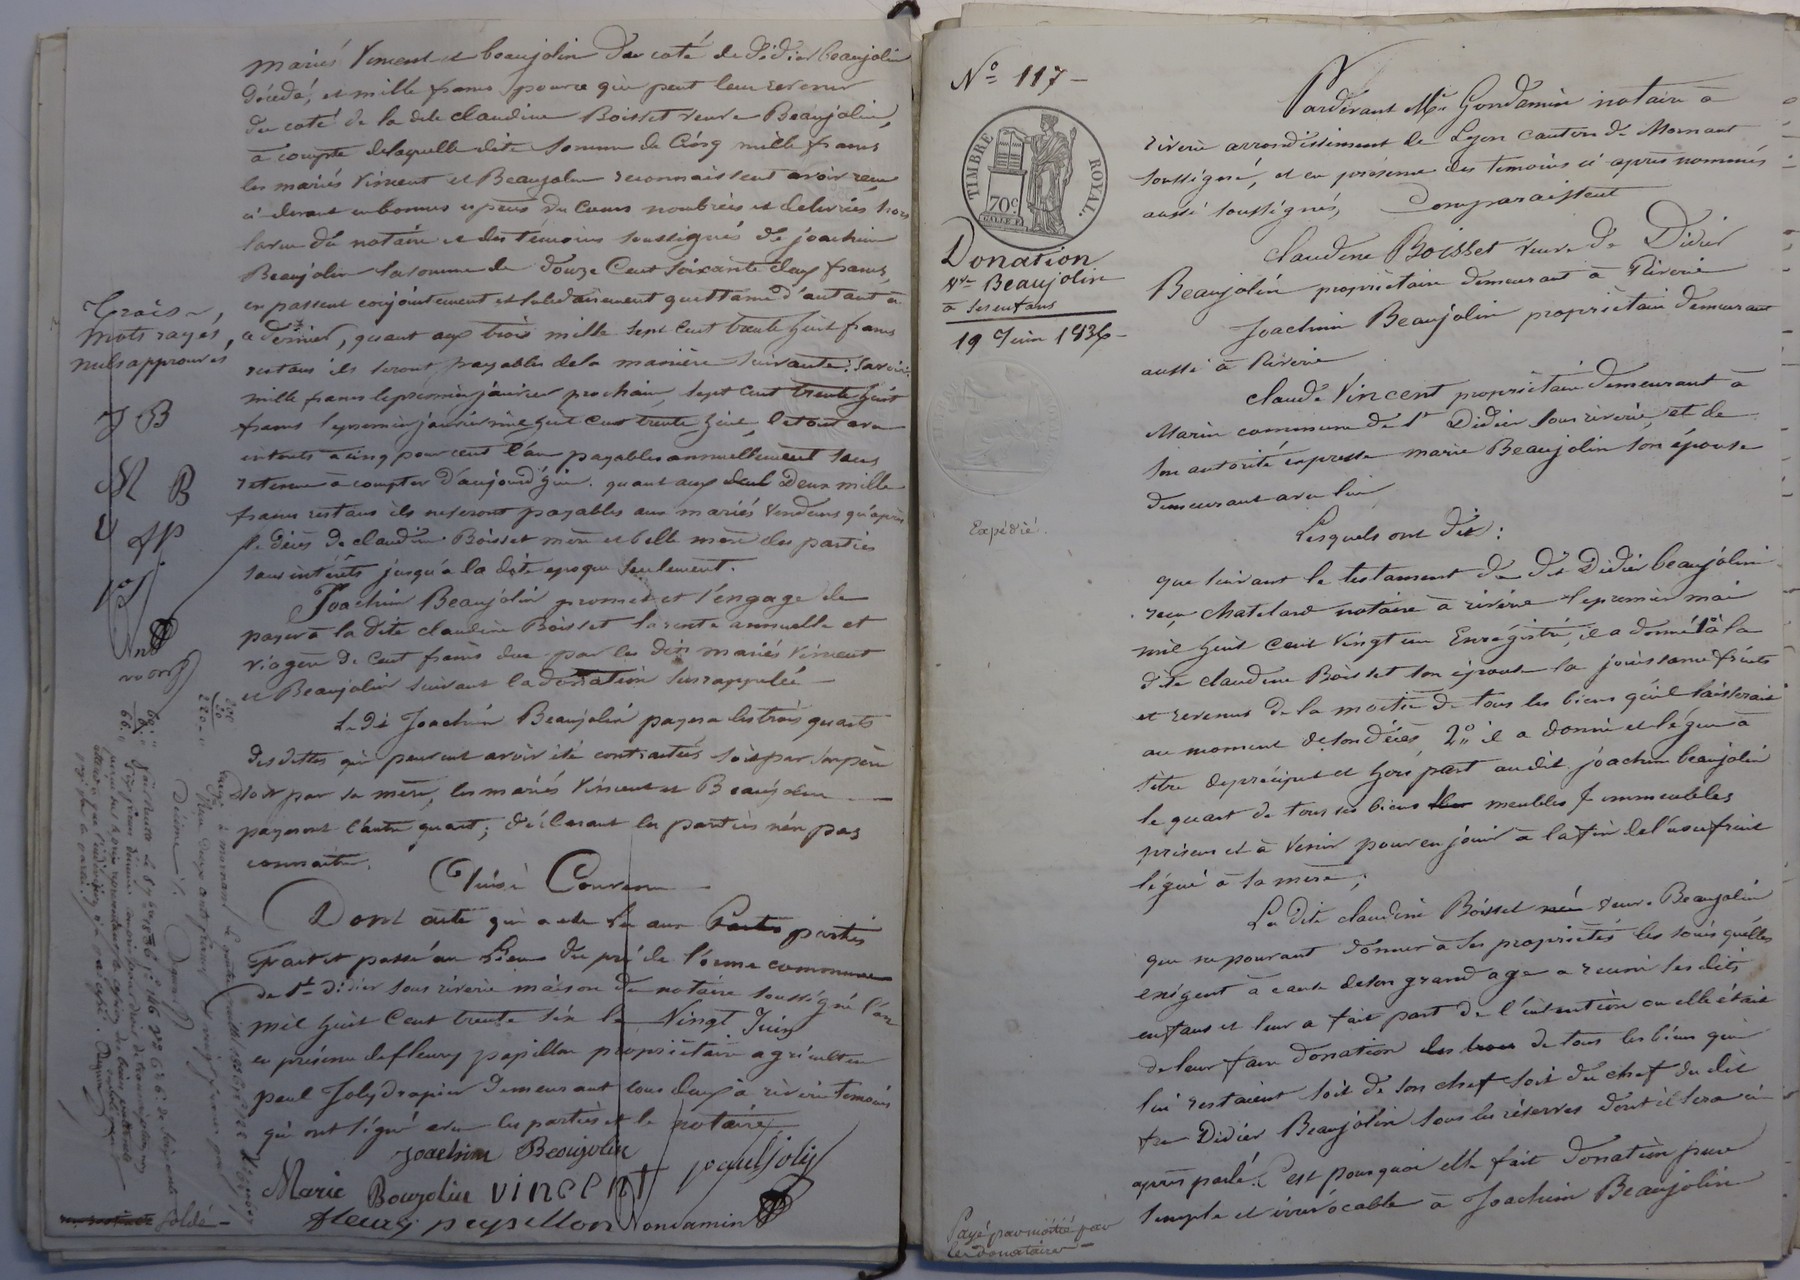 mariés Vincent et beaujolin du coté de Didier beaujolin
décédé, et mille francs pource qui peut leur revenir
du coté de la dite claudine Boisset veuve Beaujolin,
à compte delaquelle dite somme de Cinq mille francs
les mariés Vincent et Beaujolin reconnaissent avoir reçu
ci devant en bonnes espèces du Cours nombrées et delivrées hors
la vue du notaire et des témoins soussignés de joachim
Beaujolin la somme de Douze Cent soixante deux francs,
en passent conjointement et solidairement quittance d'autant à
ce dernier, quant aux trois mille sept Cent trente huit francs
restans ils seront payables de la manière suivante: savoir:
mille francs le premier janvier prochain, sept cent trente huit
francs le premier janvier mil huit Cent trente huit, le tout avec
intérêts à cinq pour cent l'an payables annuellement sans
retenue à compter d'aujourd'hui. quant aux Deux mille
francs restans ils ne seront payables aux mariés Vendeurs qu'après
le Décès de claudine Boisset mère et belle mère des parties
sans intérêts jusqu'à la dite epoque seulement.
Joachim Beaujolin promet et s'engage de
payer à la Dite claudine Boisset la rente annuelle et
viagère de Cent francs due par les dits mariés Vincent
et Beaujolin suivant la donation susrappelée
Le dit Joachim Beaujolin payera les trois quarts
des dettes qui peuvent avoir été contractées soit par son père
soit par sa mère, les mariés Vincent et Beaujolin
payeront l'autre quart; déclarant les parties n'en pas
connaitre.
Ainsi Convenu
Dont acte qui a été lu aux parties
Fait et passé au Lieu du pré de l'orme commune
de St Didier sous riverie maison du notaire soussigné l'an
mil huit Cent trente six le Vingt Juin
en présence de fleury papillon propriétaire agriculteur
paul Joly drapier Demeurant tous deux à riverie temoins
qui ont signé avec les parties et le notaire
Joachim Beaujolin
Marie Boujolin vincent paul joly
fleury papillon Gondamin
Trois
mots rayés,
nuls approuvés
J B
M B
V fP
soldé
N° 117
TIMBRE ROYAL.
70c
Donation
Vve Beaujolin
à ses enfans
19 Juin 1836
Expédié.
Payé par moitié par
les donataires
Pardevant Me Gondamin notaire à
riverie arrondissement de Lyon canton de Mornant
soussigné, et en présence des temoins ci après nommés
aussi soussignés, Comparaissent
claudine Boisset veuve de Didier
Beaujolin propriétaire demeurant à Riverie
Joachim Beaujolin propriétaire demeurant
aussi à Riverie
claude Vincent propriétaire demeurant à
Marin commune de St Didier sous riverie, et de
son autorité expresse marie Beaujolin son épouse
demeurant avec lui
Lesquels ont dit:
que suivant le testament du dit Didier beaujolin
reçu chatelard notaire à riverie le premier mai
mil huit cent vingt un Enregistré, il a donné 1° à la
dite claudine Boisset son épouse la jouissance fruits
et revenus de la moitié de tous les biens qu'il laisserait
au moment de son décès, 2° il a donné et légué à
titre de préciput et hors part au dit joachim beaujolin
le quart de tous ses biens meubles & immeubles
présens et à venir pour en jouir à la fin de l'usufruit
légué à sa mère;
La dite claudine Boisset veuve Beaujolin
que ne pouvant donner à ses propriétés les soins qu'elles
exigent à cause de son grand age a reuni ses dits
enfans et leur a fait part de l'intention ou elle était
de leur faire donation de tous les biens qui
lui restaient soit de son chef soit du chef du dit
feu Didier Beaujolin sous les réserves dont il sera ci
après parlé. C'est pourquoi elle fait donation pure
simple et irrévocable à Joachim Beaujolin